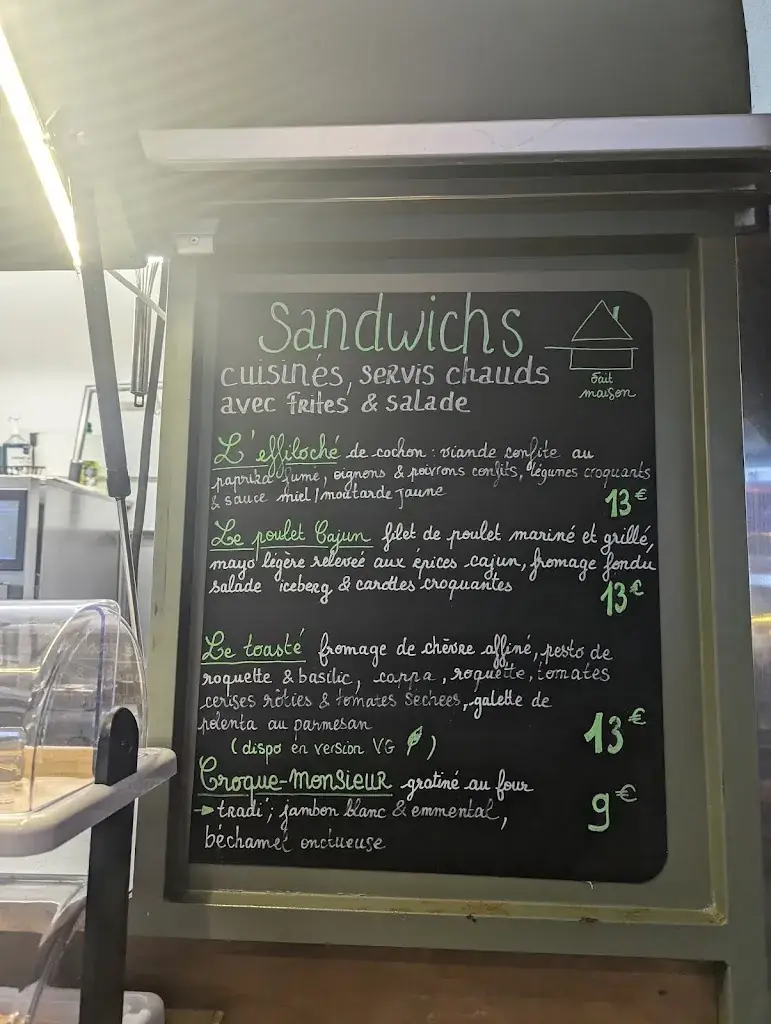 Sandwichs
cuisinés, servis chauds
avec frites & salade
fait
maison
L'effiloché de cochon : viande confite au
paprika fumé, oignons & poivrons confits, légumes croquants
& sauce miel/moutarde jaune
13€
Le poulet Cajun filet de poulet mariné et grillé,
mayo légère relevée aux épices cajun, fromage fondu
salade iceberg & carottes croquantes
13€
Le toasté fromage de chèvre affiné, pesto de
roquette & basilic, coppa, roquette, tomates
cerises rôties & tomates séchées, galette de
polenta au parmesan
13€
(dispo en version VG)
Croque-Monsieur gratiné au four
→ tradi'; jambon blanc & emmental,
9€
béchamel onctueuse